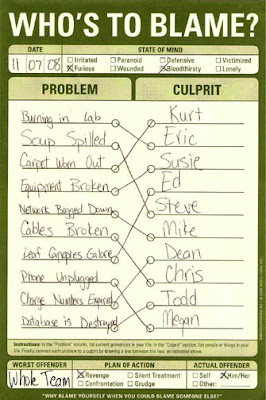 WHO'S TO BLAME?
DATE STATE OF MIND
11 07 08 Irritated Paranoid Defensive Victimized
Furious Wounded Bloodthirsty Lonely
PROBLEM CULPRIT
Burning in Lab Kurt
Soup Spilled Eric
Carpet Worn Out Susie
Equipment Broken Ed
Network Bogged Down Steve
Cables Broken Mike
Leaf Canopies Galore Dean
Phone Unplugged Chris
Charge Numbers Expired Todd
Database is Destroyed Megan
Instructions: In the "Problem" column, list current grievances in your life. In the "Culprit" section, list people or things in your
life. Finally, connect each problem to a culprit by drawing a line between the two, as indicated above.
WORST OFFENDER PLAN OF ACTION ACTUAL OFFENDER
Whole Team Revenge Silent Treatment Self Him/Her
Confrontation Grudge Other:
"WHY BLAME YOURSELF WHEN YOU COULD BLAME SOMEONE ELSE?"